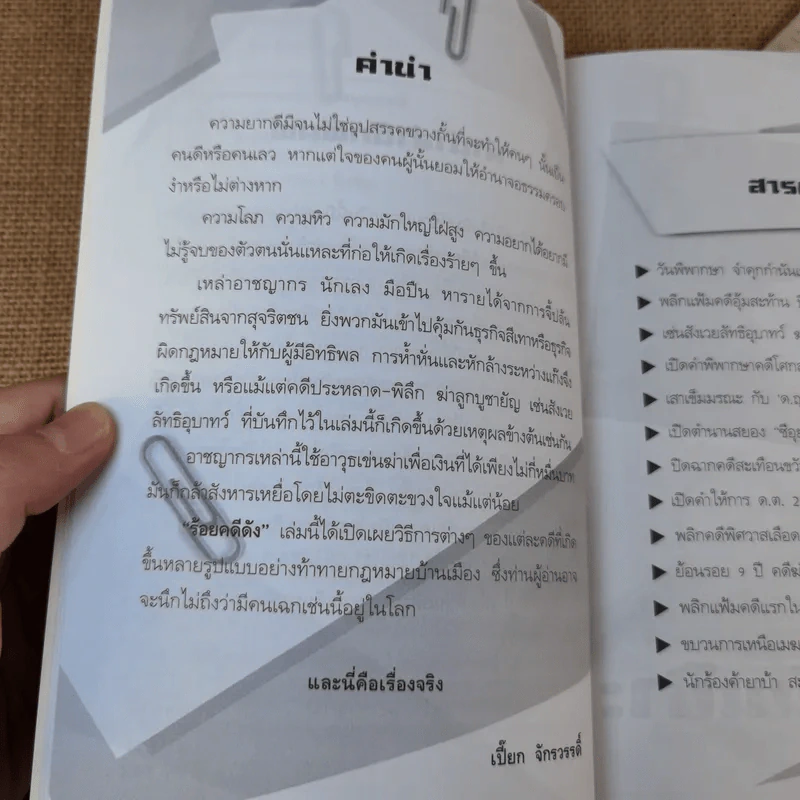 คำนำ
ความยากดีมีจนไม่ใช่อุปสรรคขวางกั้นที่จะทำให้คนๆ นั้นเป็น
คนดีหรือคนเลว หากแต่ใจของคนผู้นั้นยอมให้อำนาจอธรรมครอบ
งำหรือไม่ต่างหาก
ความโลภ ความหิว ความมักใหญ่ใฝ่สูง ความอยากได้อยากมี
ไม่รู้จบของตัวตนนั่นแหละที่ก่อให้เกิดเรื่องร้ายๆ ขึ้น
เหล่าอาชญากร นักเลง มือปืน หารายได้จากการจี้ปล้น
ทรัพย์สินจากสุจริตชน ยิ่งพวกมันเข้าไปคุ้มกันธุรกิจสีเทาหรือธุรกิจ
ผิดกฎหมายให้กับผู้มีอิทธิพล การห้ำหั่นและหักล้างระหว่างแก๊งจึง
เกิดขึ้น หรือแม้แต่คดีประหลาด-พิลึก ฆ่าลูกบูชายัญ เซ่นสังเวย
ลัทธิอุบาทว์ ที่บันทึกไว้ในเล่มนี้ก็เกิดขึ้นด้วยเหตุผลข้างต้นเช่นกัน
อาชญากรเหล่านี้ใช้อาวุธเข่นฆ่าเพื่อเงินที่ได้เพียงไม่กี่หมื่นบาท
มันก็กล้าสังหารเหยื่อโดยไม่ตะขิดตะขวงใจแม้แต่น้อย
"ร้อยคดีดัง" เล่มนี้ได้เปิดเผยวิธีการต่างๆ ของแต่ละคดีที่เกิด
ขึ้นหลายรูปแบบอย่างท้าทายกฎหมายบ้านเมือง ซึ่งท่านผู้อ่านอาจ
จะนึกไม่ถึงว่ามีคนเฉกเช่นนี้อยู่ในโลก
และนี่คือเรื่องจริง
เปี๊ยก จักรวรรดิ์
วันพิพากษา จำคุกกำนัน
พลิกแฟ้มคดีอุ้มสะท้าน
เซ่นสังเวยลัทธิอุบาทว์
เปิดคำพิพากษาคดี
เสาเข็มมรณะ กับ
เปิดตำนานสยอง
ปิดฉากคดีสะเทือนขวัญ
เปิดคำให้การ ด.ต. 2
พลิกคดีพิศวาสเลือด
ย้อนรอย 9 ปี คดี
พลิกแฟ้มคดีแรกใน
ขบวนการเหนือเมฆ
นักร้องค้ายาบ้า